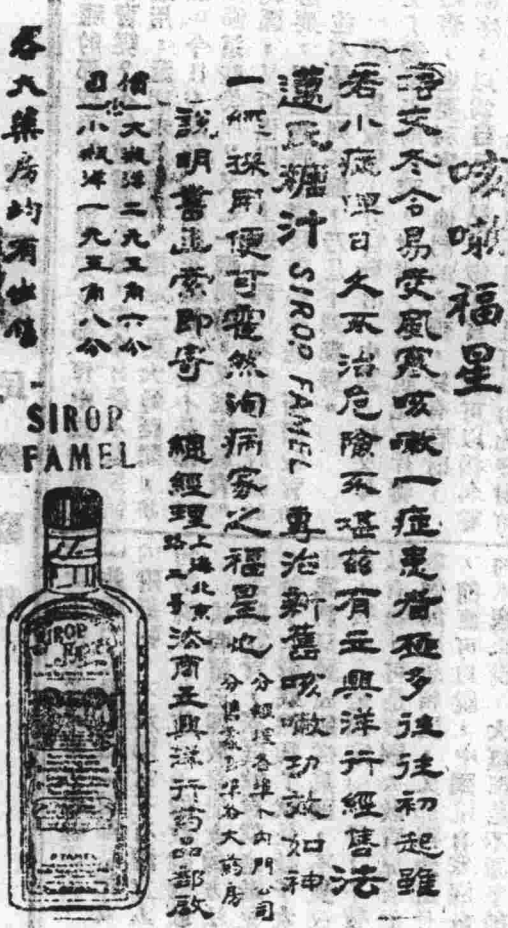 咳嗽福星
冬令易受風寒咳嗽一症患者極多往往初起雖
若小疵但日久不治危險不堪茲有立興洋行經售法
邁氏糖汁 SIROP FAMEL 專治新舊咳嗽功效如神
一經採用便可霍然洵病家之福星也
分售處各埠各大藥房
說明書函索即寄 總經理 上海北京
路二號 法商立興洋行药品部啟
價 大瓶洋二元五角六分
目 小瓶洋一元五角八分
各大藥房均有出售
SIROP
FAMEL
SIROP
FAMEL